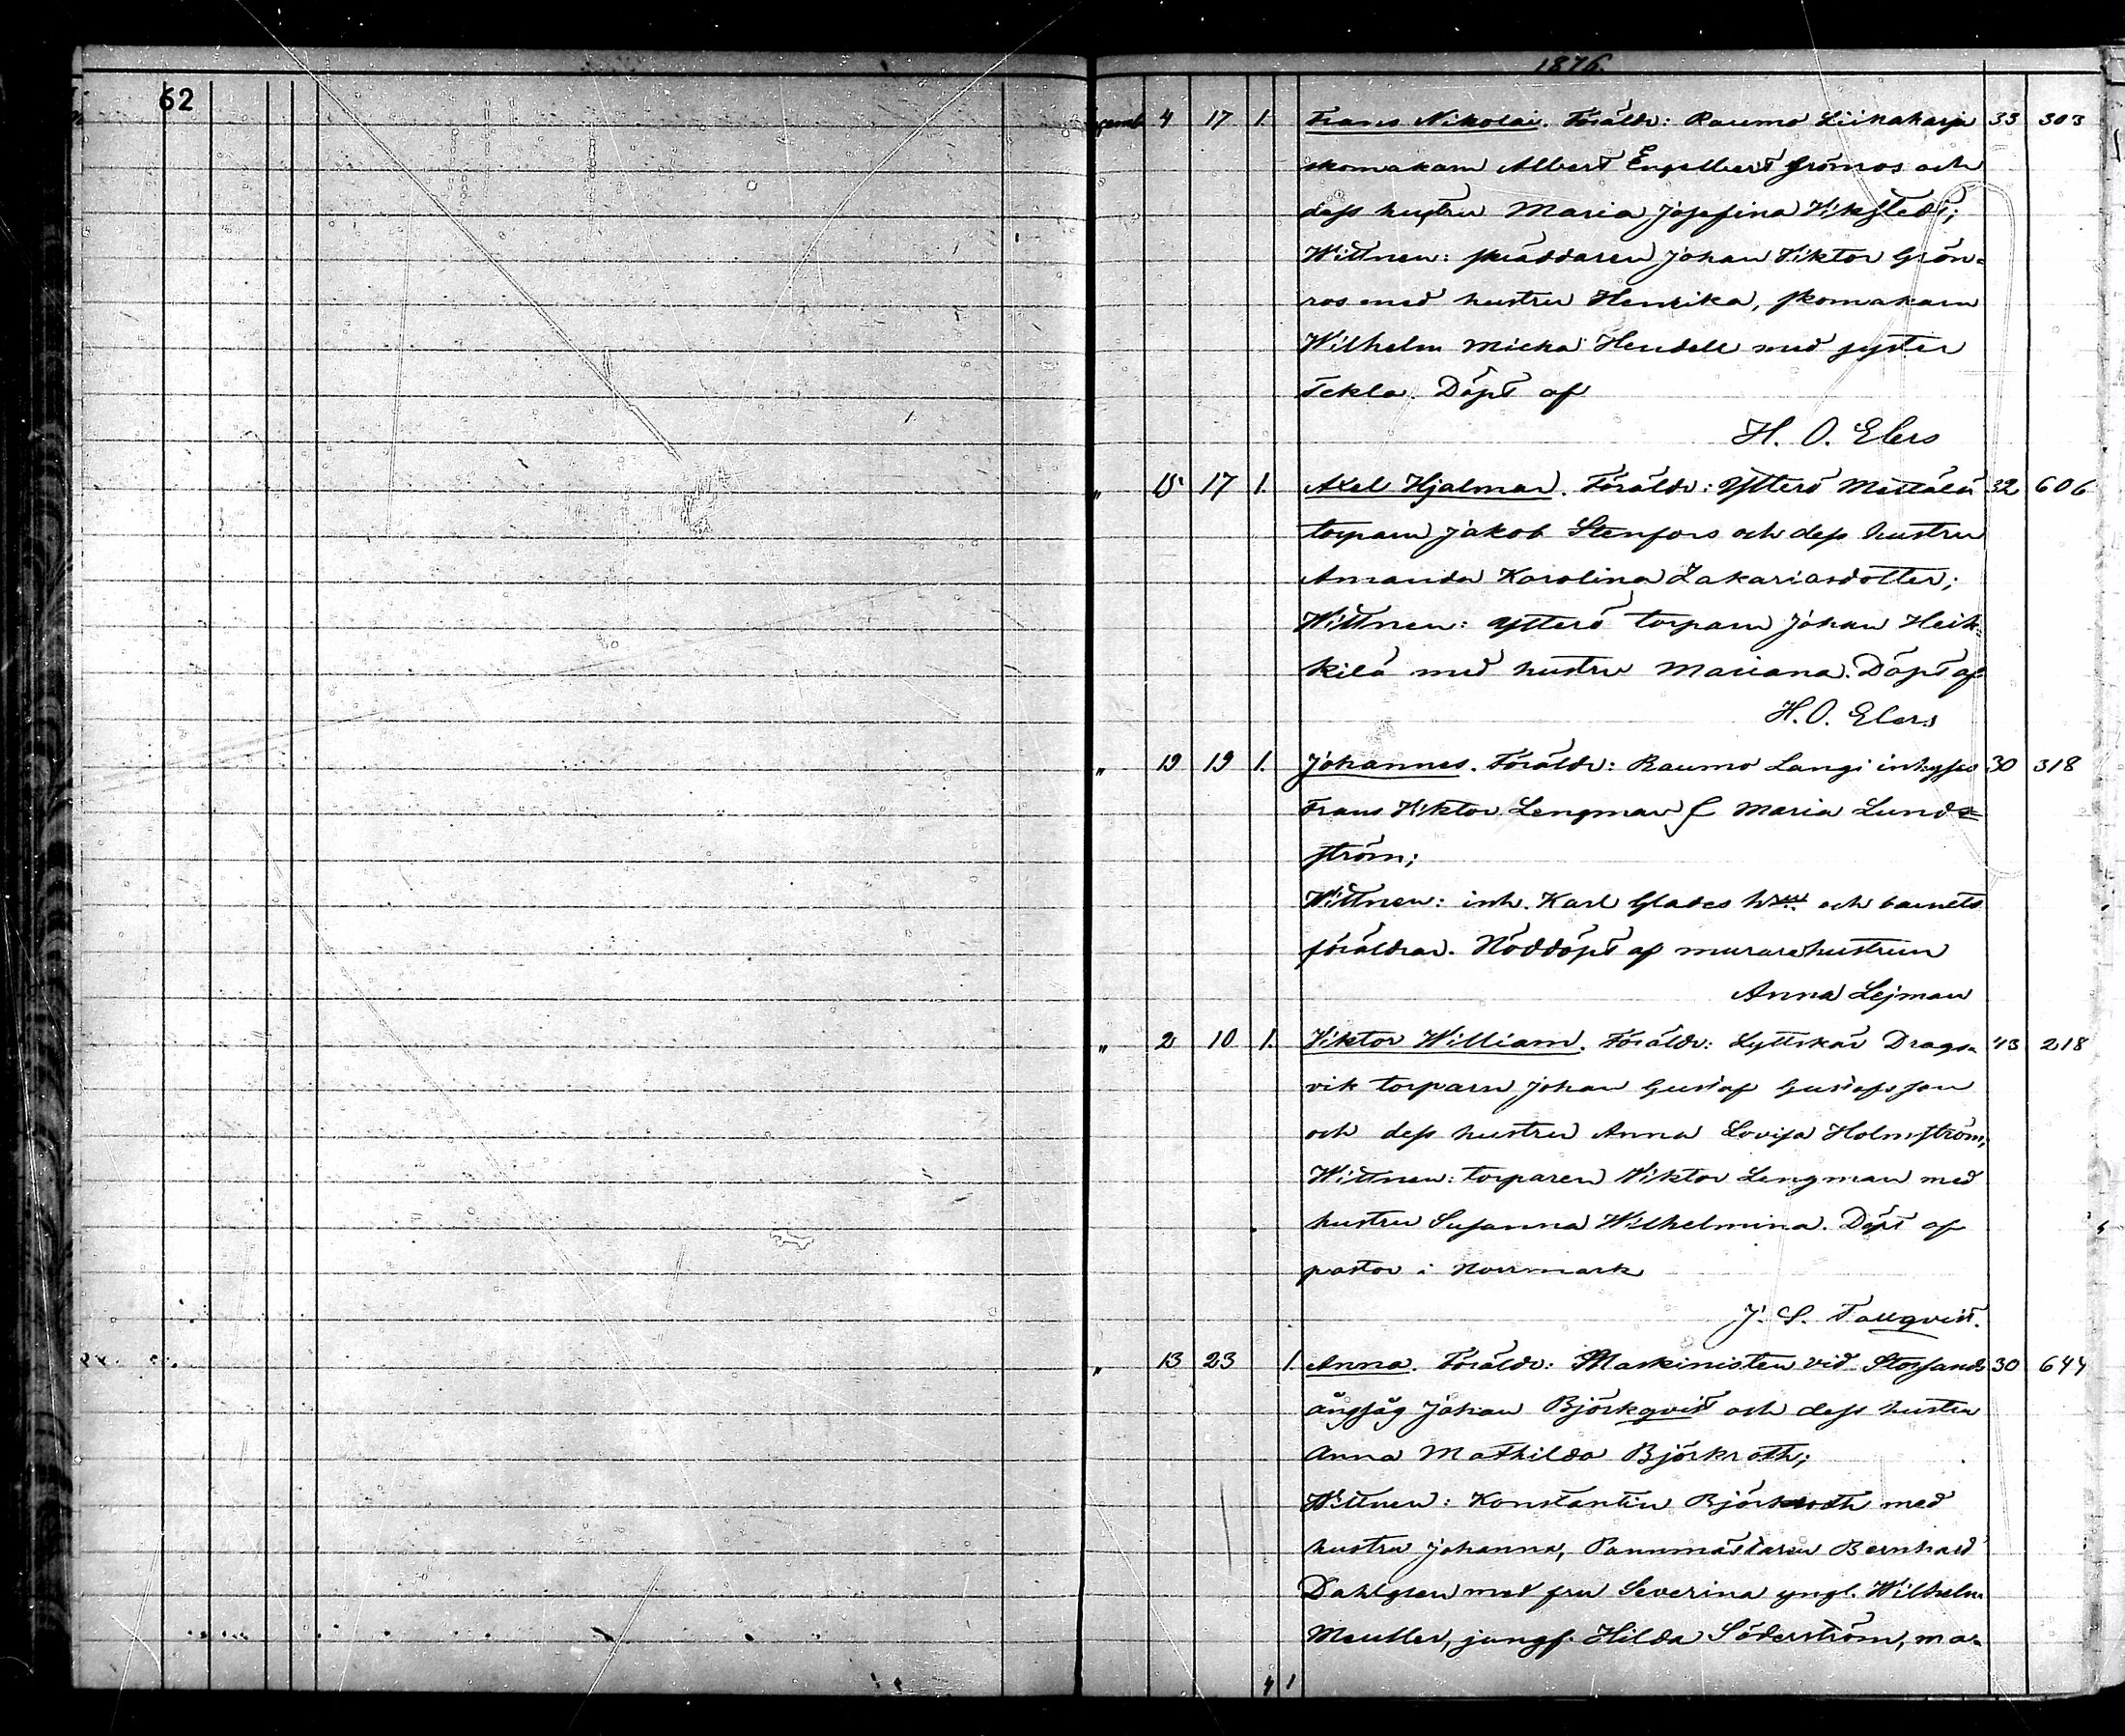 1876.
62
4 17 1. Frans Nikolai. Föräldr: Raumo Liinaharja 33 303
skomakarn Albert Engelbert Grönros och
dess hustru Maria Josefina Vikstedt;
Wittnen: skräddaren Johan Viktor Grön-
ros med hustru Henrika, skomakarn
Wilhelm Micka Hendell med syster
Tekla. Döpt af
H. O. Elers
" 15 17 1. Axel Hjalmar. Föräldr: Ytterö Mettälä 32 606
torparn Jakob Stenfors och dess hustru
Amanda Karolina Zakariasdotter;
Wittnen: Ytterö torparn Johan Heik-
kilä med hustru Mariana. Döpt af
H. O. Elers
" 19 19 1. Johannes. Föräldr: Raumo Langi inhyses 30 318
Frans Viktor Lengman & Maria Lund-
ström;
Wittnen: inh. Karl Glades hru och barnets
föräldrar. Nöddöpt af murarehustrun
Anna Lejman
" 2 10 1. Viktor William. Föräldr: Lyttskär Drags- 43 218
vik torparn Johan Gustaf Gustafsson
och dess hustru Anna Lovisa Holmström;
Wittnen: torparen Viktor Lengman med
hustru Susanna Wilhelmina. Döpt af
pastor i Norrmark
J. S. Tallqvist.
" 13 23 1. Anna. Föräldr: Maskinisten vid Storsands 30 644
ångsåg Johan Björkqvist och dess hustru
Anna Mathilda Björkroth;
Wittnen: Konstantin Björkroth med
hustru Johanna, Pannmästaren Bernhard
Dahlgren med fru Severina yngl. Wilhelm
Meutler, jungf. Hilda Söderström, ma-
4 1